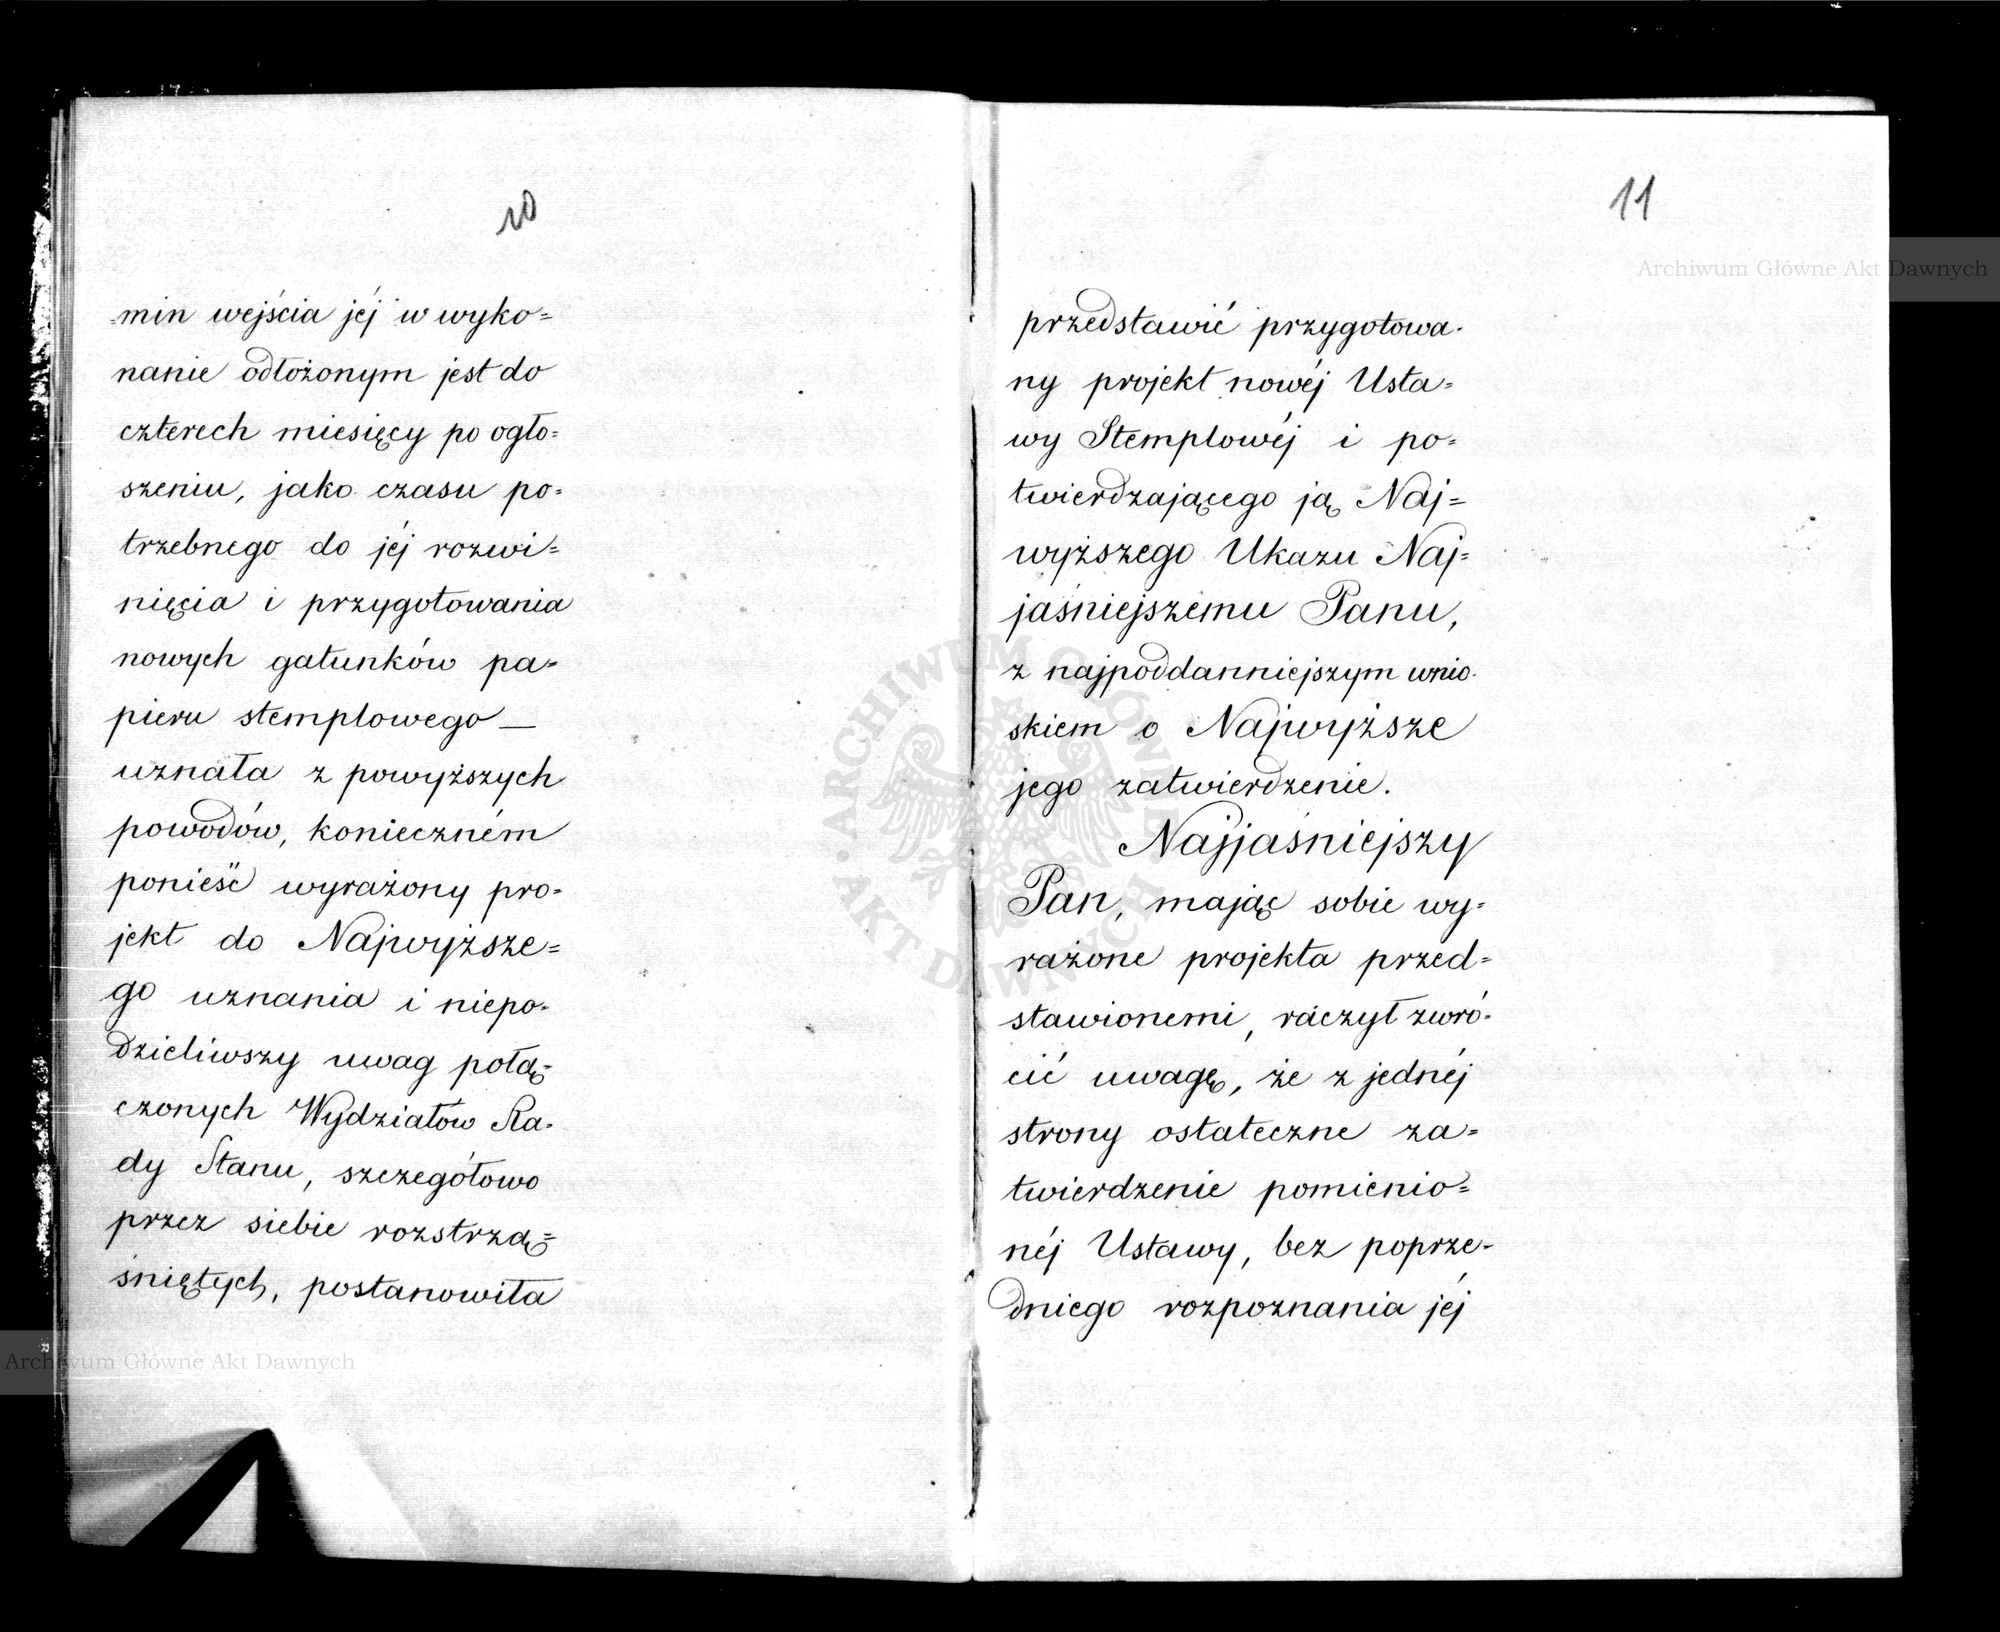 10
min wejścia jéj w wyko=
nanie odłożonym jest do
czterech miesięcy po ogło=
szeniu, jako czasu po=
trzebnego do jéj rozwi=
nięcia i przygotowania
nowych gatunków pa=
pieru stemplowego —
uznała z powyższych
powodów, konieczném
ponieść wyrażony pro=
jekt do Najwyższe=
go uznania i niepo=
dzieliwszy uwag połą=
czonych Wydziałów Ra=
dy Stanu, szczegółowo
przez siebie rozstrzą=
śniętych, postanowiła
11
przedstawić przygotowa=
ny projekt nowéj Usta=
wy Stemplowéj i po=
twierdzającego ją Naj=
wyższego Ukazu Naj=
jaśniejszemu Panu,
z najpoddanniejszym wnio=
skiem o Najwyższe
jego zatwierdzenie.
Najjaśniejszy
Pan, mając sobie wy=
rażone projekta przed=
stawionemi, raczył zwró=
cić uwagę, że z jednéj
strony ostateczne za=
twierdzenie pomienio=
néj Ustawy, bez poprze=
dniego rozpoznania jéj
Archiwum Główne Akt Dawnych
Archiwum Główne Akt Dawnych
ARCHIWUM GŁÓWNE AKT DAWNYCH